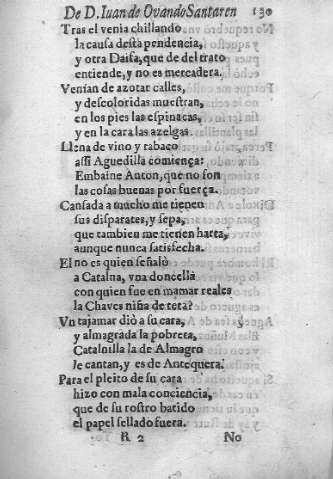 De D. Iuan de Ovando Santaren 130
Tras el venia chillando
la causa desta pendencia,
y otra Daifa, que de del trato
entiende, y no es mercadera.
Venían de azotar calles,
y descoloridas muestran,
en los pies las espinacas,
y en la cara las azelgas.
Llena de vino y tabaco
assi Aguedilla comiença:
Embaine Anton, que no son
las cosas buenas por fuerça.
Cansada a mucho me tienen
sus disparates, y sepa,
que tambien me tienen harta,
aunque nunca satisfecha.
El no es quien señalò
a Catalna, vna doncella
con quien fue en mamar reales
la Chaves niña de teta?
Vn tajamar diò a su cara,
y almagrada la pobreta,
Catalnilla la de Almagro
le cantan, y es de Antequera.
Para el pleito de su cara
hizo con mala conciencia,
que de su rostro batido
el papel sellado fuera.
R 2 No